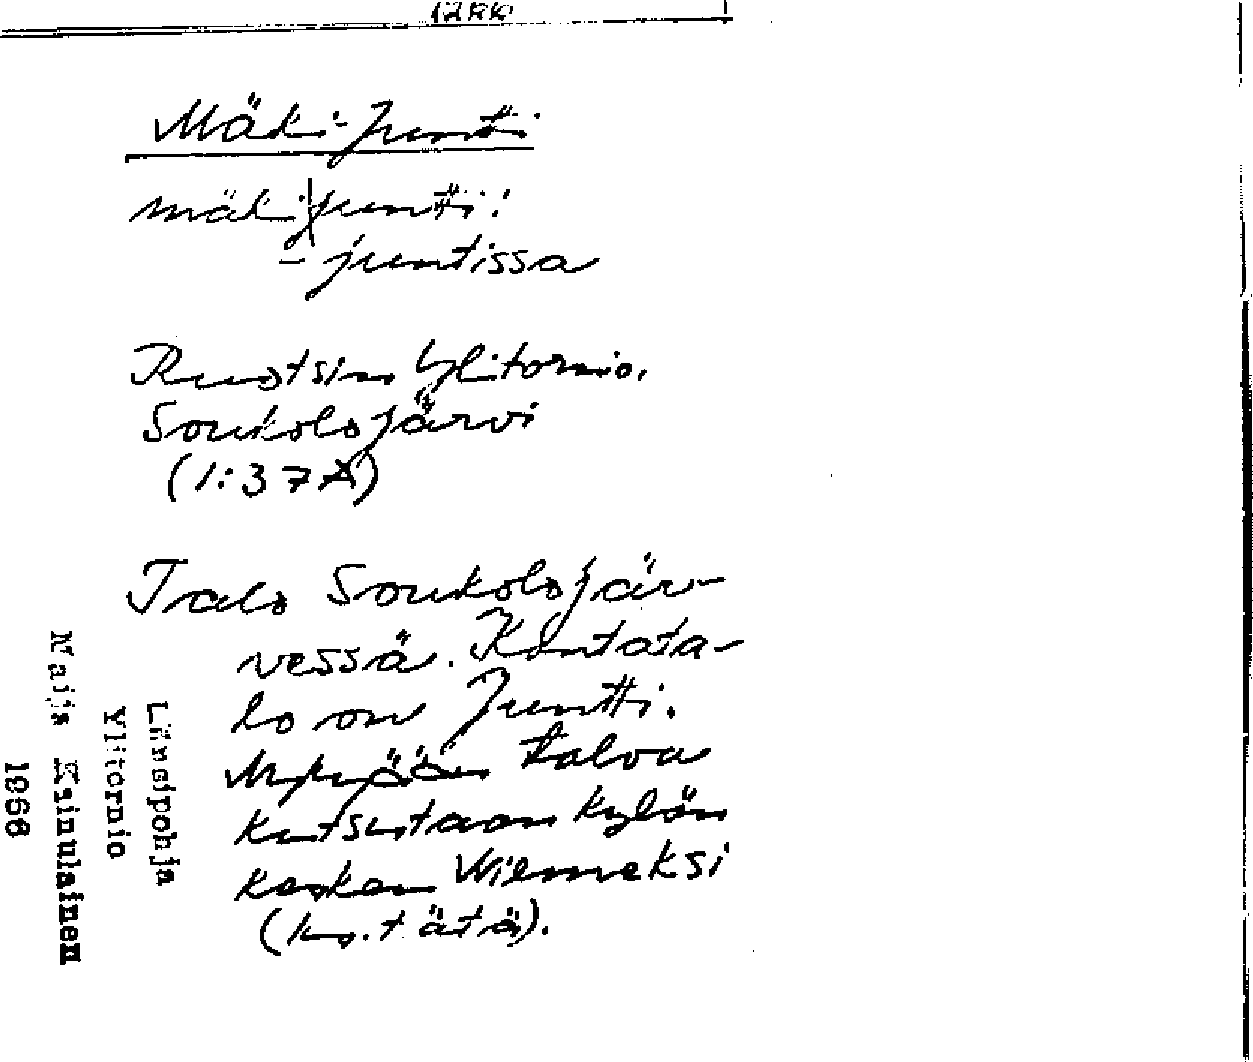 Mäki-Juntti
mäkijuntti:
- juntissa
Ruotsin Ylitornio.
Soukolojärvi
(1:37A)
Talo Soukolojär-
vessä. Kantata-
lo on Juntti.
Nykyään taloa
kutsutaan kylän
kesken Wiemeksi
(ks. t ätä).
Länsipohja
Ylitornio
Maija Kainulainen
1966